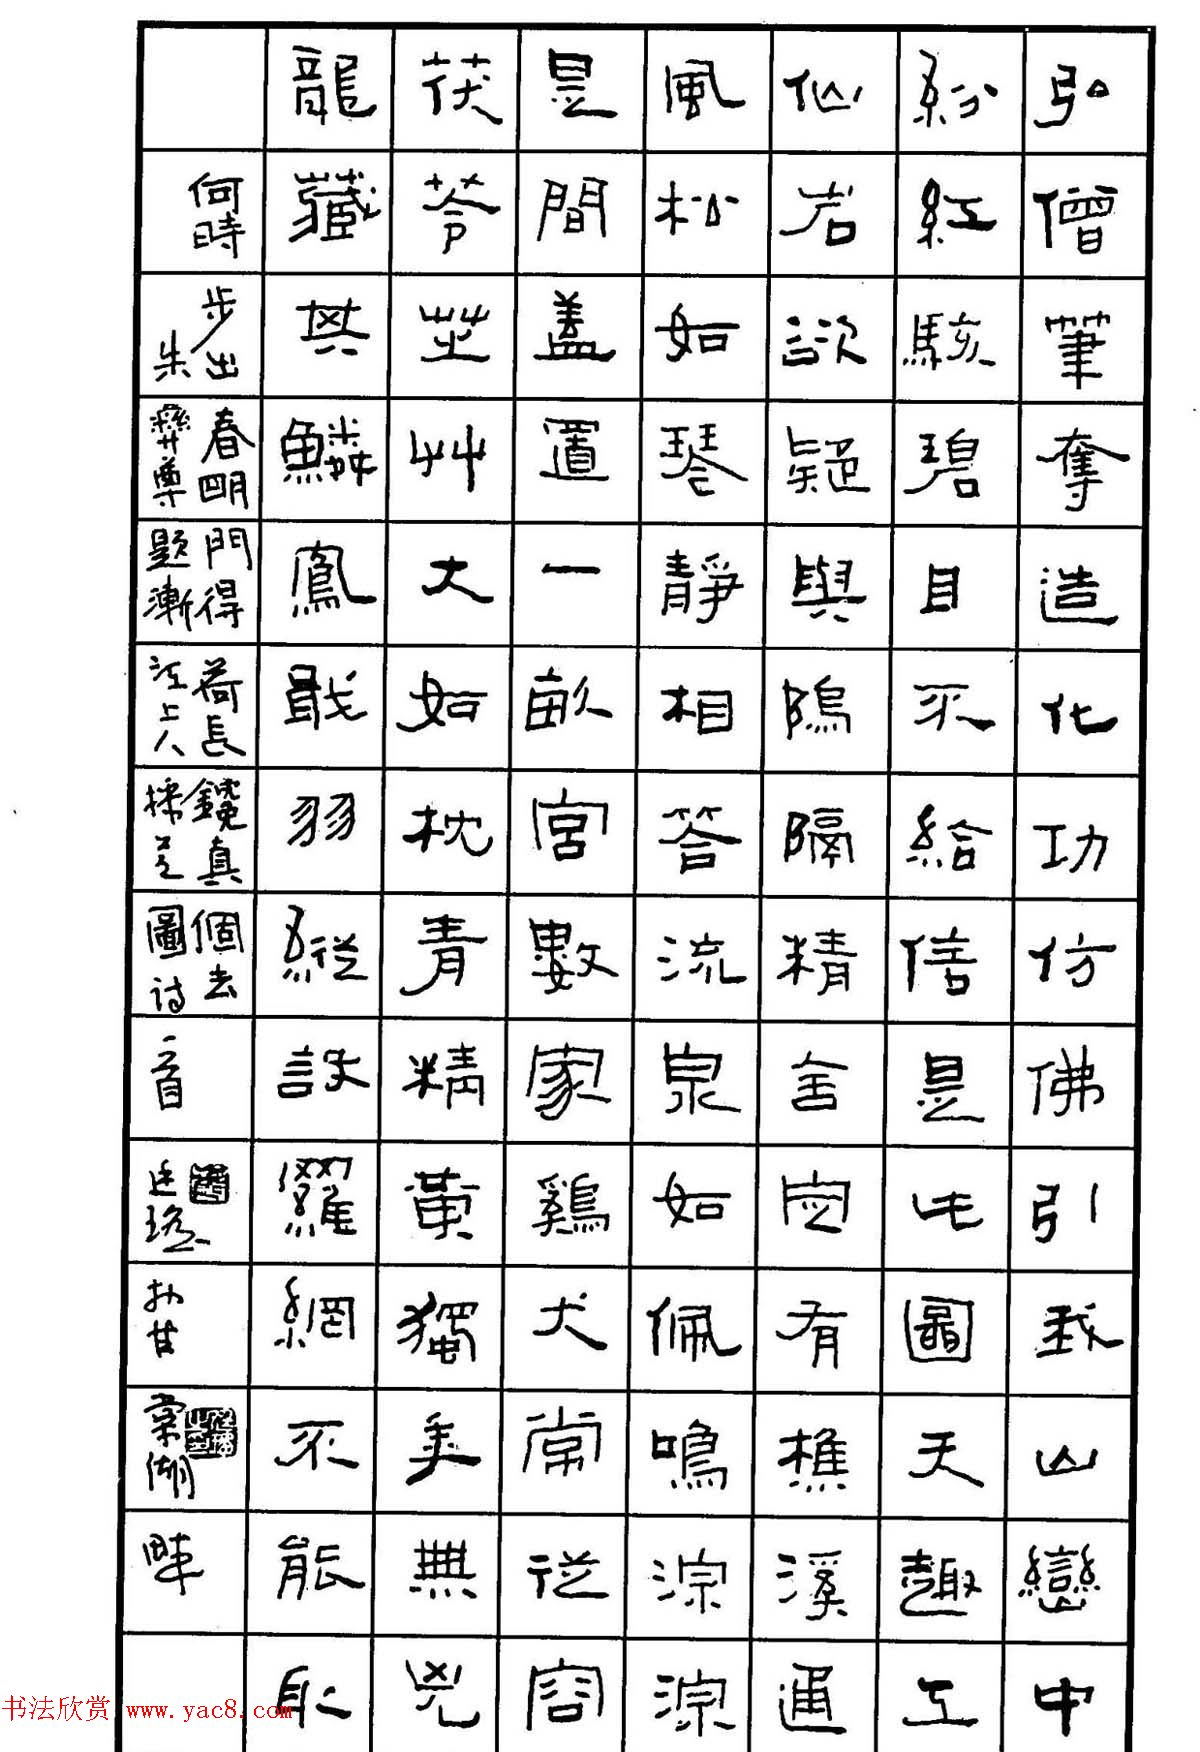 弘僧筆奪造化功仿佛引我山巒中
紛紅駭碧目不給信是此圖天趣工
仙岩欲疑與隖隔精舍定有樵溪通
風松如琴靜相答流泉如佩鳴淙淙
是間蓋置一畝宮數家鷄犬常從容
茯苓芝艸大如枕青精黃獨年無凶
龍藏其鱗鳳戢羽縱設羅網不能取
何時步出春明門得荷長鑱真個去
朱彝尊題漸江上人採芝圖詩
一首
書法欣赏 www.yac8.com